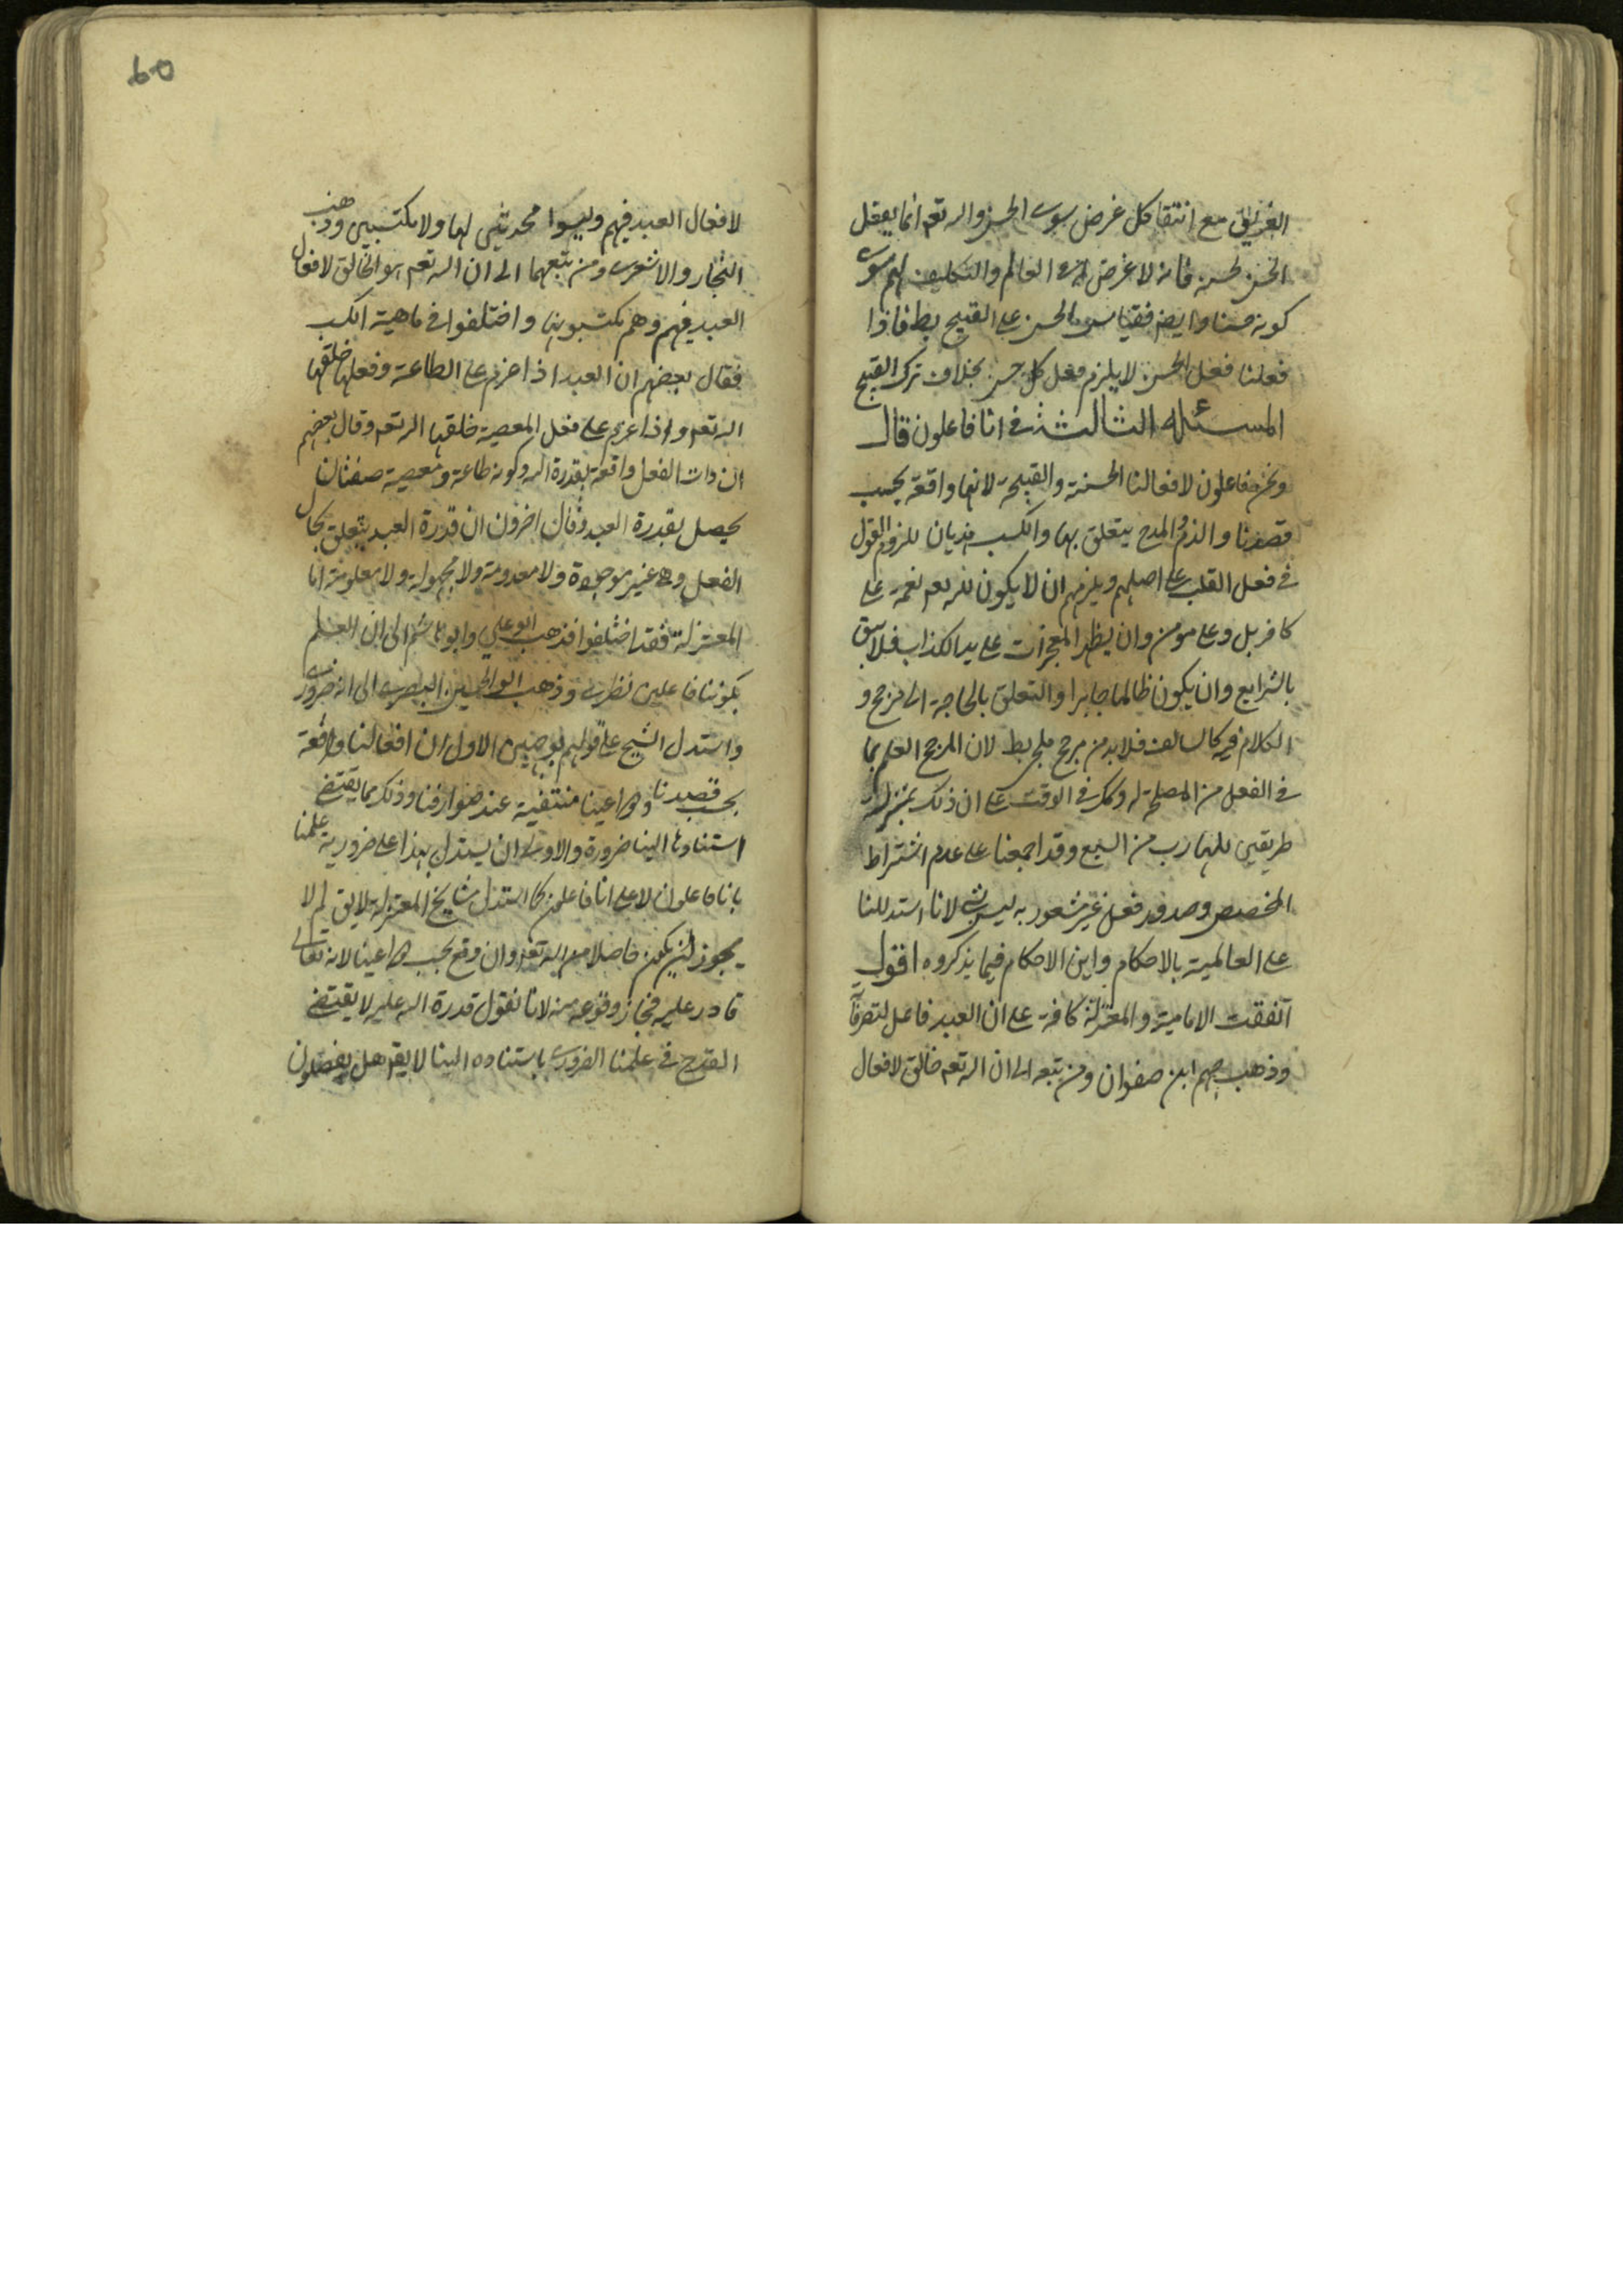 الغريق مع انتفا كل غرض سوى الحسن والله تعم انما يفعل
الحسن لحسنه فانه لا غرض له العالم والتكليف لهم سوى
كونه حسنا وايضا فقياس الحسن على القبيح بط فاذا
فعلنا فعل الحسن لا يلزم فعل كل حسن بخلاف ترك القبيح
المسئله الثالثة في انا فاعلون قال
ونحن فاعلون لافعالنا الحسنة والقبيحة لانها واقعة بحسب
قصدنا والذم والمدح يتعلق بها والكسب هذيان للزوم القول
في فعل القلب على اصلهم ويلزمهم ان لا يكون لله تعم نعمة على
كافر بل وعلى مومن وان يظهر المعجزات على يد الكذاب فلا يبق
بالشرايع وان يكون ظالما جايرا والتعلق بالحاجة الى مرجح و
الكلام فيه كالسالف فلا بد من مرجح ملجى بط لان المرجح العلم بما
في الفعل من المصلحة له وكك في الوقت على ان ذلك بمنزلة
طريقين للهارب من السبع وقد اجمعنا على عدم اشتراط
المخصص وصدور فعل غير مشعور به ليس بشى لانا استدللنا
على العالمية بالاحكام واين الاحكام فيما يذكروه اقول
اتفقت الامامية والمعتزلة كافة على ان العبد فاعل لتصرفاته
وذهب جهم ابن صفوان ومن تبعه الى ان الله تعم خالق لافعال
60
لافعال العبد فيهم وليسوا محدثين لها ولا مكتسبين وذهب
النجار والاشعرى ومن تبعهما الى ان الله تعم هو الخالق لافعال
العبد فيهم وهم مكتسبون بها واختلفوا في ماهية الكسب
فقال بعضهم ان العبد اذا عزم على الطاعة وفعلها خلقها
الله تعم واذا عزم على فعل المعصية خلقها الله تعم وقال بعضهم
ان ذات الفعل واقعة بقدرة الله وكونه طاعة ومعصية صفتان
يحصل بقدرة العبد وقال اخرون ان قدرة العبد يتعلق بحال
الفعل وهى غير موجودة ولا معدومة ولا مجهولة ولا معلومة اما
المعتزلة فقد اختلفوا فذهب ابو على وابو هاشم الى ان العلم
بكوننا فاعلين نظرى وذهب ابو الحسين البصرى الى انه ضرورى
واستدل الشيخ على قولهم بوجهين الاول ان افعالنا واقعة
بحسب قصدنا ودواعينا منتفية عند صوارفنا وذلك مما يقتضى
استنادها الينا ضرورة والاولى ان يستدل بهذا على ضرورية علمنا
بانا فاعلون لا على انا فاعلون كما استدل مشايخ المعتزلة لا يق لم لا
يجوز ان يكون حاصلا من الله تعم وان وقع بحسب دواعينا لانه تعالى
قادر عليه فجاز وقوعه منه لانا نقول قدرة الله عليه لا يقتضى
القدح في علمنا الضرورى باستناده الينا لا يقم هل يفصلون